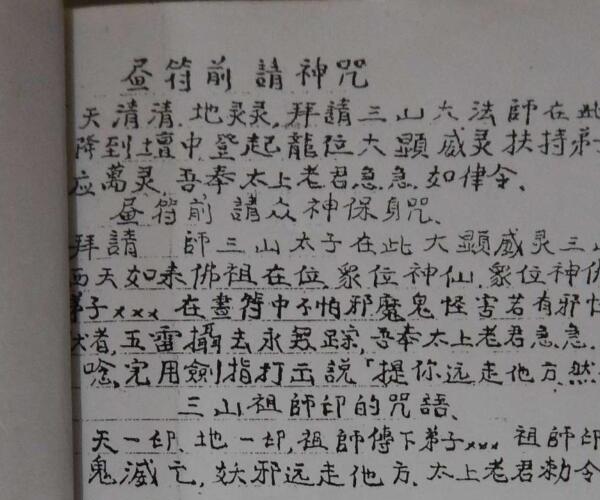 昼符前請神咒
天清清,地灵灵,拜請三山六法師在此
降到壇中,登起龍位大顯威灵扶持弟子
应萬灵,吾奉太上老君急急,如律令、
昼符前請众神保身咒、
拜請 師三山太子在此大顯威灵三山
西天如来佛祖在位,衆位神仙,衆位神佛
弟子×××在畫符中不怕邪魔鬼怪害若有邪怪
者,五雷攝去永無踪,吾奉太上老君急急、
唸完用劍指打出説「提你远走他方,然
三山祖師印的咒語、
天一印、地一印,祖師傳下弟子×××祖師印
鬼滅亡,妖邪远走他方、太上老君勅令